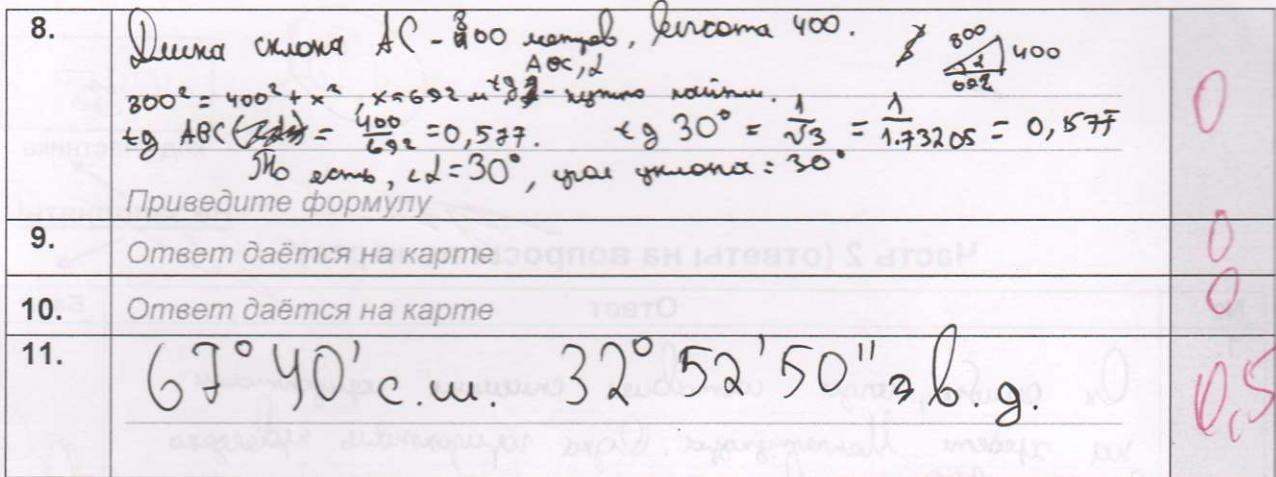 8.
Длина склона АС - 800 метров, высота 400.
800
400
692
АВС, α
800² = 400² + x², x = 692 м tg - нужно найти.
tg АВС = 400/692 = 0,577. tg 30° = 1/√3 = 1/1.73205 = 0,577
То есть, ∠α = 30°, угол уклона = 30°
0
Приведите формулу
9.
Ответ даётся на карте
0
10.
Ответ даётся на карте
0
11.
67° 40' с.ш. 32° 52' 50'' в.д.
0,5